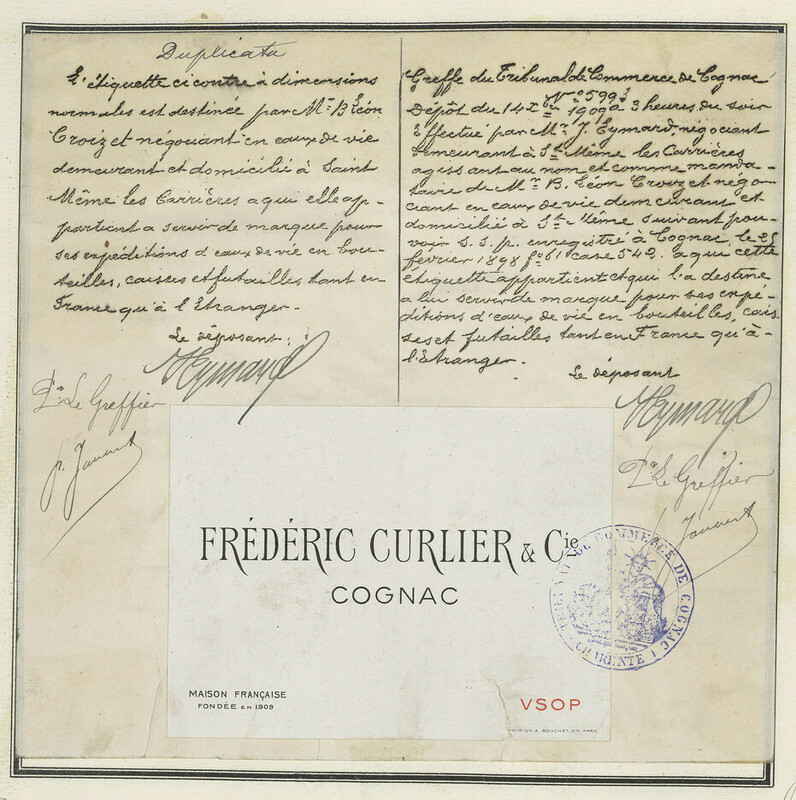 Duplicata
L'étiquette ci contre à dimensions
normales est destinée par Mr B Léon
Croizet négociant en eaux de vie
demeurant et domicilié à Saint
Même les Carrières a qui elle ap-
partient a servir de marque pour
ses expéditions d'eaux de vie en bou-
teilles, caisses et futailles tant en
France qu'à l'Etranger.
Le déposant:
Eymard
Le Greffier
Greffe du Tribunal de Commerce de Cognac
No 5993
Dépôt du 14 1909 à 3 heures du soir
Effectué par Mr J. Eymard, négociant
demeurant à St Même les Carrières
agissant au nom et comme manda-
taire de Mr B. Léon Croizet négo-
ciant en eaux de vie demeurant et
domicilié à St Même suivant pou-
voir s. s. p. enregistré à Cognac, le 25
février 1898 fo 61 case 542. a qui cette
étiquette appartient et qui l'a destine
a lui servir de marque pour ses expé-
ditions d'eaux de vie en bouteilles, cais
ses et futailles tant en France qu'à-
l'Etranger.
Le déposant
Eymard
Le Greffier
FRÉDÉRIC CURLIER & Cie
COGNAC
MAISON FRANÇAISE
FONDÉE EN 1909
VSOP
TRIBUNAL DE COMMERCE DE COGNAC
(CHARENTE)